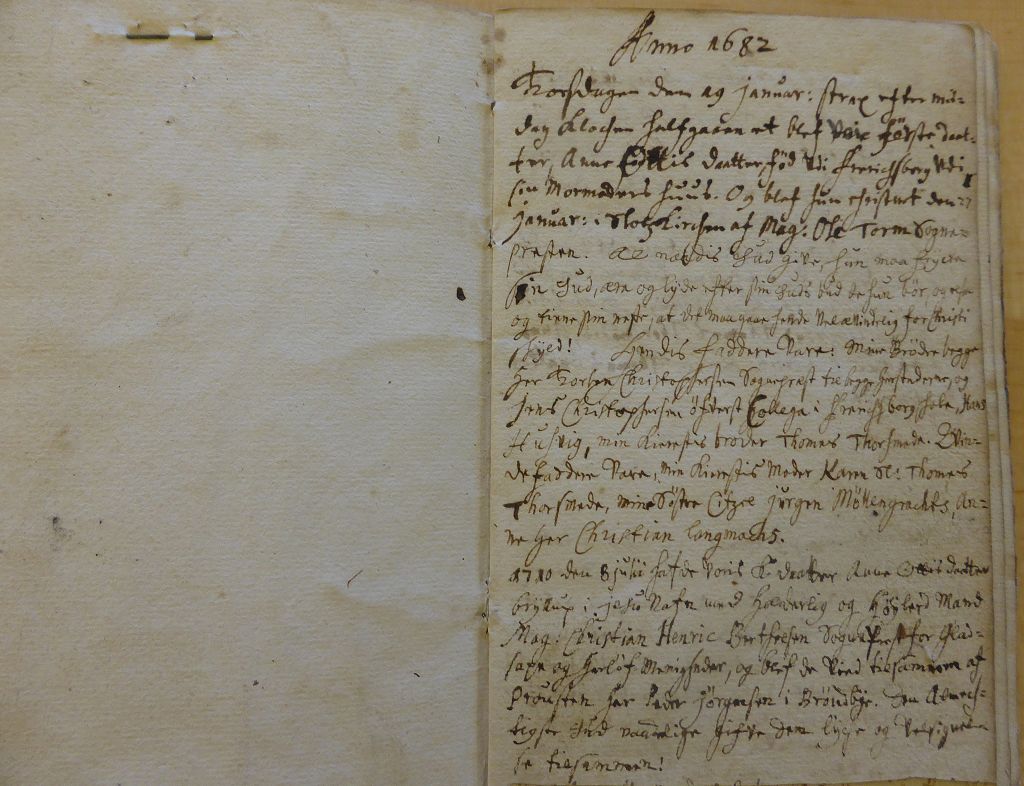 Anno 1682
Torsdagen den 19 Januar: strax efter mid-
dag Klochen halfgaaen et blef voris förste daat-
ter, Anne Ottis daatter föd udi Fririchsborg udi
sin Mormoders Huus. Og blef hun christnet den 27
Januar: i Slotz Kirchen af Mag: Ole Torm Sogne-
presten. Gud give, hun maa frycte
sin Gud, ære og lyde efter sin Guds bud
og tienne sin neste, at det maa gaae hende vel for Christi
skyld! Hendis faddere vare: Mine Brödre begge
Her Torben Christophersen Sognepræst til begge Herstederne, og
Jens Christophersen öfverst Collega i Fririchsborg schole, Hans
Husvig, min Kierestis broder Thomas Thorsmede. Qvin-
de faddere vare, Min Kierestis Moder Karen Sl: Thomas
Thorsmeds, mine Söstre Citzel Jürgen Möllengrachts, An-
ne Her Christian Langmachs.
1710 den 8 Julii hafde voris K. daatter Anne Ottis daatter
bryllup i Jesu Nafn med Hæderlig og Höylerd Mand
Mag: Christian Henric Berthelsen Sogne Prest for Glad-
saxe og Herlöf Menigheder, og blef de viede tilsammen af
Prousten Her Peder Jörgensen i Bröndbye. Den Almech-
tigste Gud naadelige gifve dem lycke og Velsignel-
se tilsammen!